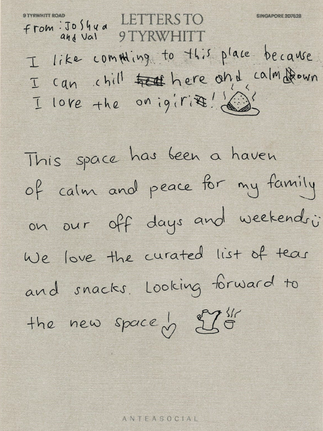 9 TYRWHITT ROAD
LETTERS TO
9 TYRWHITT
SINGAPORE 207528
from: Joshua
and Val
I like comming to this place because
I can chill here and calm down
I love the onigiri!
This space has been a haven
of calm and peace for my family
on our off days and weekends
We love the curated list of teas
and snacks. Looking forward to
the new space!
ANTEASOCIAL